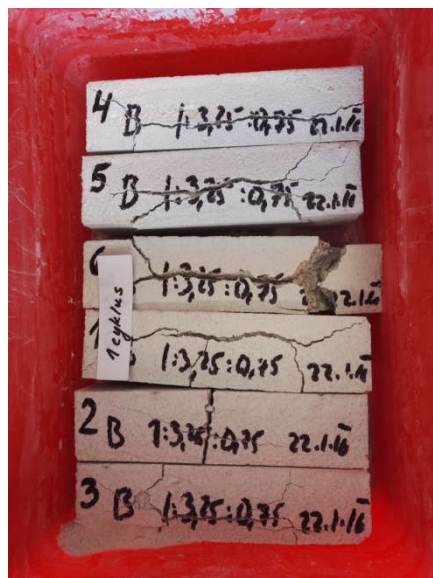 4 B 1:3,25:0,75 22.1.16
5 B 1:3,25:0,75 22.1.16
6 1:3,25:0,75 22.1.16
1 cyklus
1 1:3,25:0,75 22.1.16
2 B 1:3,25:0,75 22.1.16
3 B 1:3,25:0,75 22.1.16